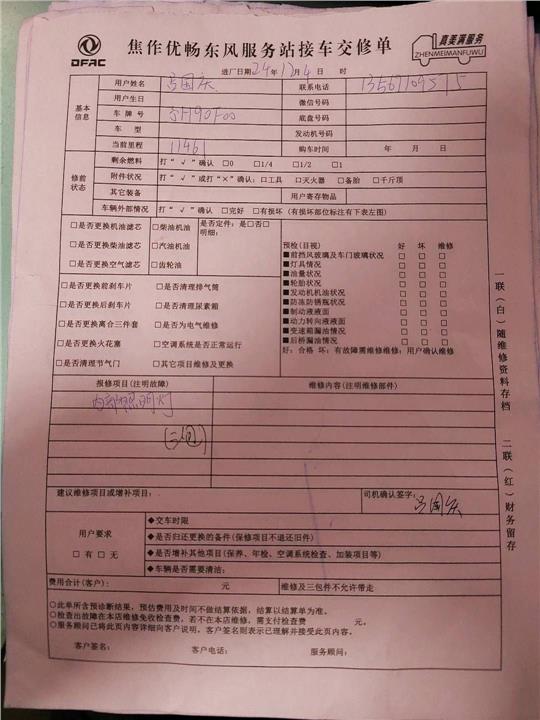 DFAC
焦作优畅东风服务站接车交修单
真美满服务
ZHENMEIMANFUWU
进厂日期: 24年12月4日 时
基本信息
用户姓名 吕国庆 联系电话
用户生日 微信号码
车牌号 底盘号码
车型 发动机号码
当前里程 11461 购车时间 年 月 日
修前状态
剩余燃料 打"√"确认 □0 □1/4 □1/2 □1
附件状况 打"√"或打"×"确认: □工具 □灭火器 □备胎 □千斤顶
其它装备 用户寄存物品
车辆外部情况 打"√"确认 □完好 □有损坏 (有损坏部位标注有下表左图)
□是否更换机油滤芯 □柴油机油 是否定件: 是□否□
明细:
□是否更换柴油滤芯 □汽油机油
□是否更换空气滤芯 □齿轮油
□是否更换前刹车片 □是否清理排气筒
□是否更换后刹车片 □是否清理尿素箱
□是否更换离合三件套 □是否为电气维修
□是否更换火花塞 □空调系统是否正常运行
□是否清理节气门 □其它项目维修及更换
预检(目视) 好 坏 维修
■前挡风玻璃及车门玻璃状况 □ □ □
■灯具情况 □ □ □
■油量状况 □ □ □
■轮胎状况 □ □ □
■发动机机油状况 □ □ □
■防冻防锈瓶状况 □ □ □
■制动液液面 □ □ □
■动力转向液液面 □ □ □
■变速箱漏油情况 □ □ □
■后桥漏油情况 □ □ □
好: 合格 坏: 有故障需维修维修: 用户确认维修
报修项目(注明故障) 维修内容(注明维修部件)
内部照明灯
(三包)
建议维修项目或增补项目: 司机确认签字:
吕国庆
用户要求
□有 □无
◆交车时限
◆是否归还更换的备件(保修项目不退还旧件)
◆是否增补其他项目(保养、年检、空调系统检查、加装项目等)
◆车辆是否需要清洁:
费用合计(客户): 元 维修及三包件不允许带走
○此单所含预诊断结果, 预估费用及时间不做结算依据, 结算以结算单为准。
○检查出故障在本店维修免收检查费, 若不在本店维修, 需支付检查费 元。
○服务顾问已将此页内容详细向客户说明, 客户签名则表示已理解并接受此页内容。
客户签名: 客户电话: 服务顾问:
一联(白)随维修资料存档 二联(红)财务留存